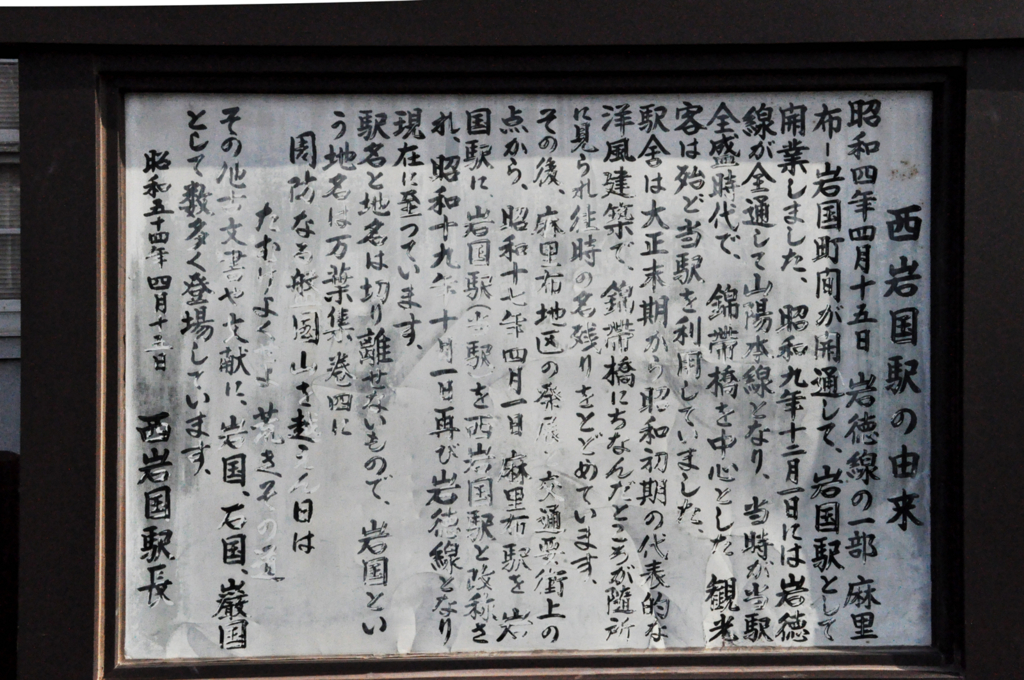 西岩国駅の由来
昭和四年四月十五日 岩徳線の一部 麻里
布ー岩国町間が開通して、岩国駅として
開業しました、昭和九年十二月一日には岩徳
線が全通して山陽本線となり、当時が当駅
全盛時代で、錦帯橋を中心とした 観光
客は殆ど当駅を利用していました、
駅舎は大正末期から昭和初期の代表的な
洋風建築で、錦帯橋にちなんだところが随所
に見うれ往時の名残りをとどめています、
その後、麻里布地区の発展、交通要衝上の
点から、昭和十七年四月一日 麻里布駅を 岩
国駅に、岩国駅(当駅)を西岩国駅と改称さ
れ、昭和十九年十月一日再び岩徳線となり
現在に至つています、
駅名と地名は切り離せないもので、岩国とい
う地名は万葉集巻四に
周防なる 国山を越えん日は
たむけよくせよ 荒き その道
その他古文書や文献に、岩国、石国、巌国
として数多く登場しています、
昭和五十四年四月十五日
西岩国駅長